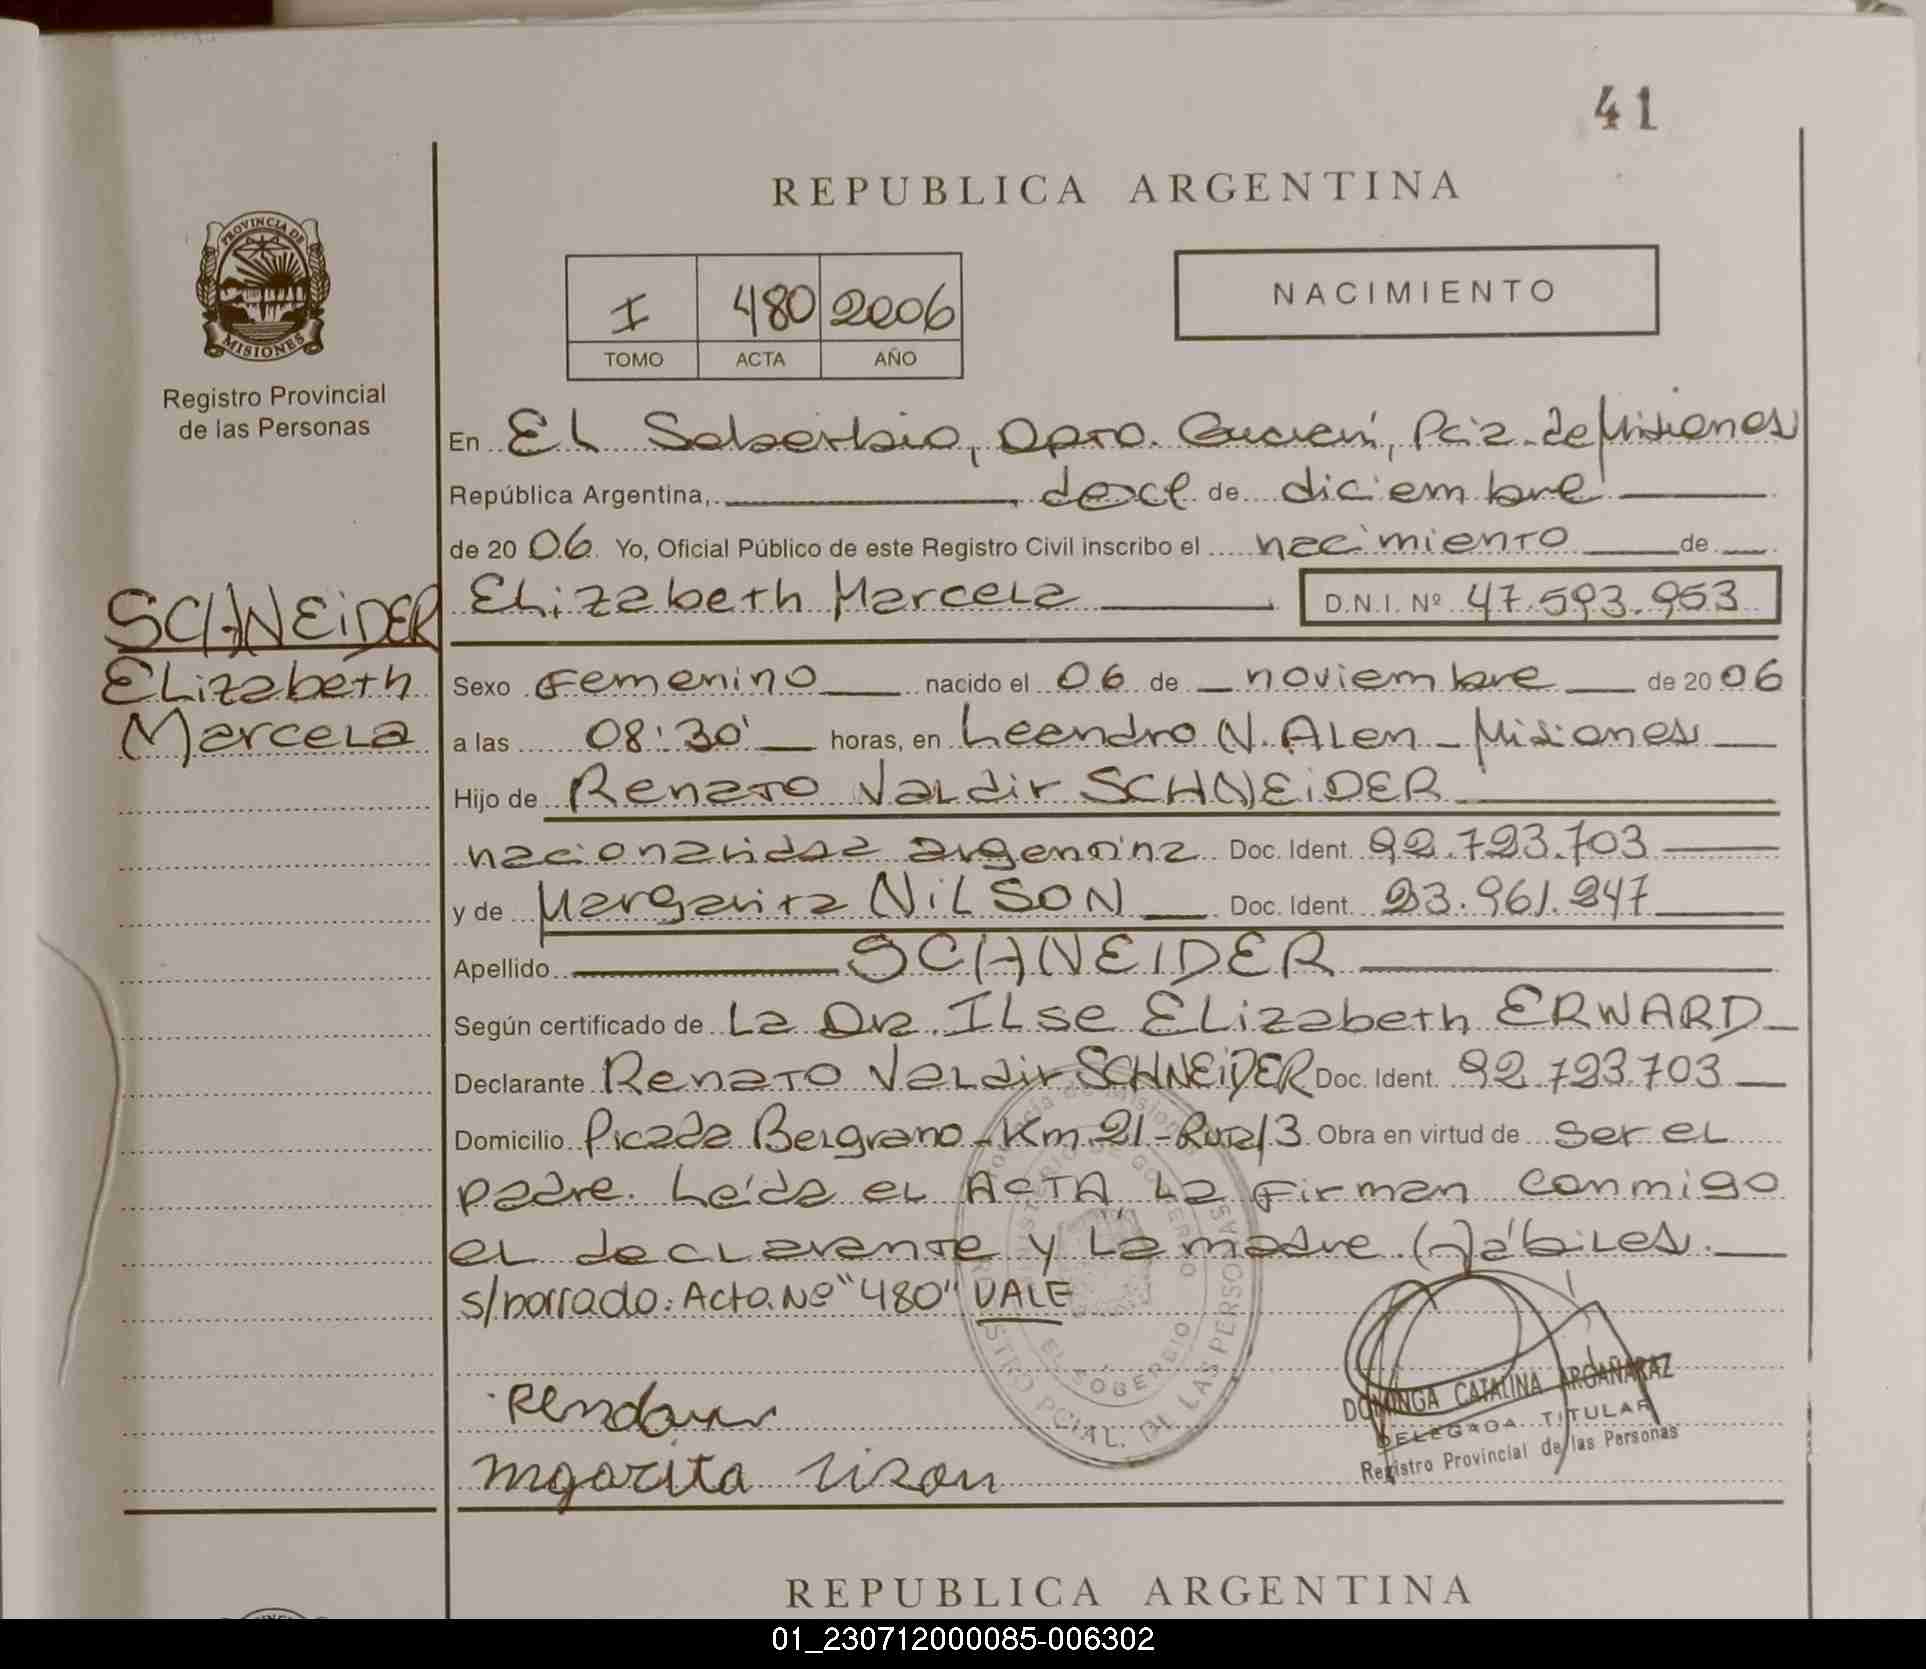 41
REPUBLICA ARGENTINA
PROVINCIA DE
MISIONES
Registro Provincial
de las Personas
I 480 2006
TOMO ACTA AÑO
NACIMIENTO
En El Soberbio, Dpto. Guaraní, Pcia. de Misiones
República Argentina, doce de diciembre
de 2006 Yo, Oficial Público de este Registro Civil inscribo el nacimiento de
Elizabeth Marcela D.N.I. Nº 47.593.953
SCHNEiDER
Elizabeth
Marcela
Sexo Femenino nacido el 06 de noviembre de 2006
a las 08:30' horas, en Leandro N. Alem - Misiones
Hijo de Renato Valdir SCHNEiDER
nacionalidad argentina Doc. Ident. 92.723.703
y de Margarita NiLSON Doc. Ident. 23.961.247
Apellido SCHNEIDER
Según certificado de La Dra. Ilse Elizabeth ERWARD
Declarante Renato Valdir SCHNEiDER Doc. Ident. 92.723.703
Domicilio Picada Belgrano - Km 21 - Ruta 13 Obra en virtud de ser el
padre. Leída el ACTA la firman conmigo
el declarante y la madre (H)ábiles.
s/borrado: Acta Nº "480" VALE
Margarita
DOMINGA CATALINA ARGAÑARAZ
DELEGADA TITULAR
Registro Provincial de las Personas
REPUBLICA ARGENTINA
01_230712000085-006302